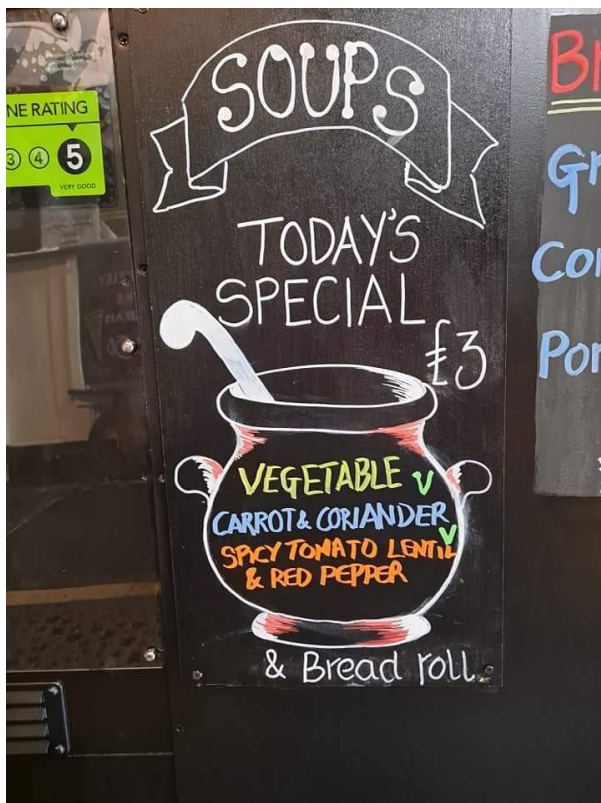 NE RATING
3 4 5
VERY GOOD
SOUPS
TODAY'S
SPECIAL
£3
VEGETABLE V
CARROT & CORIANDER V
SPICY TOMATO LENTIL
& RED PEPPER
& Bread roll
Br
Gr
Cor
Por